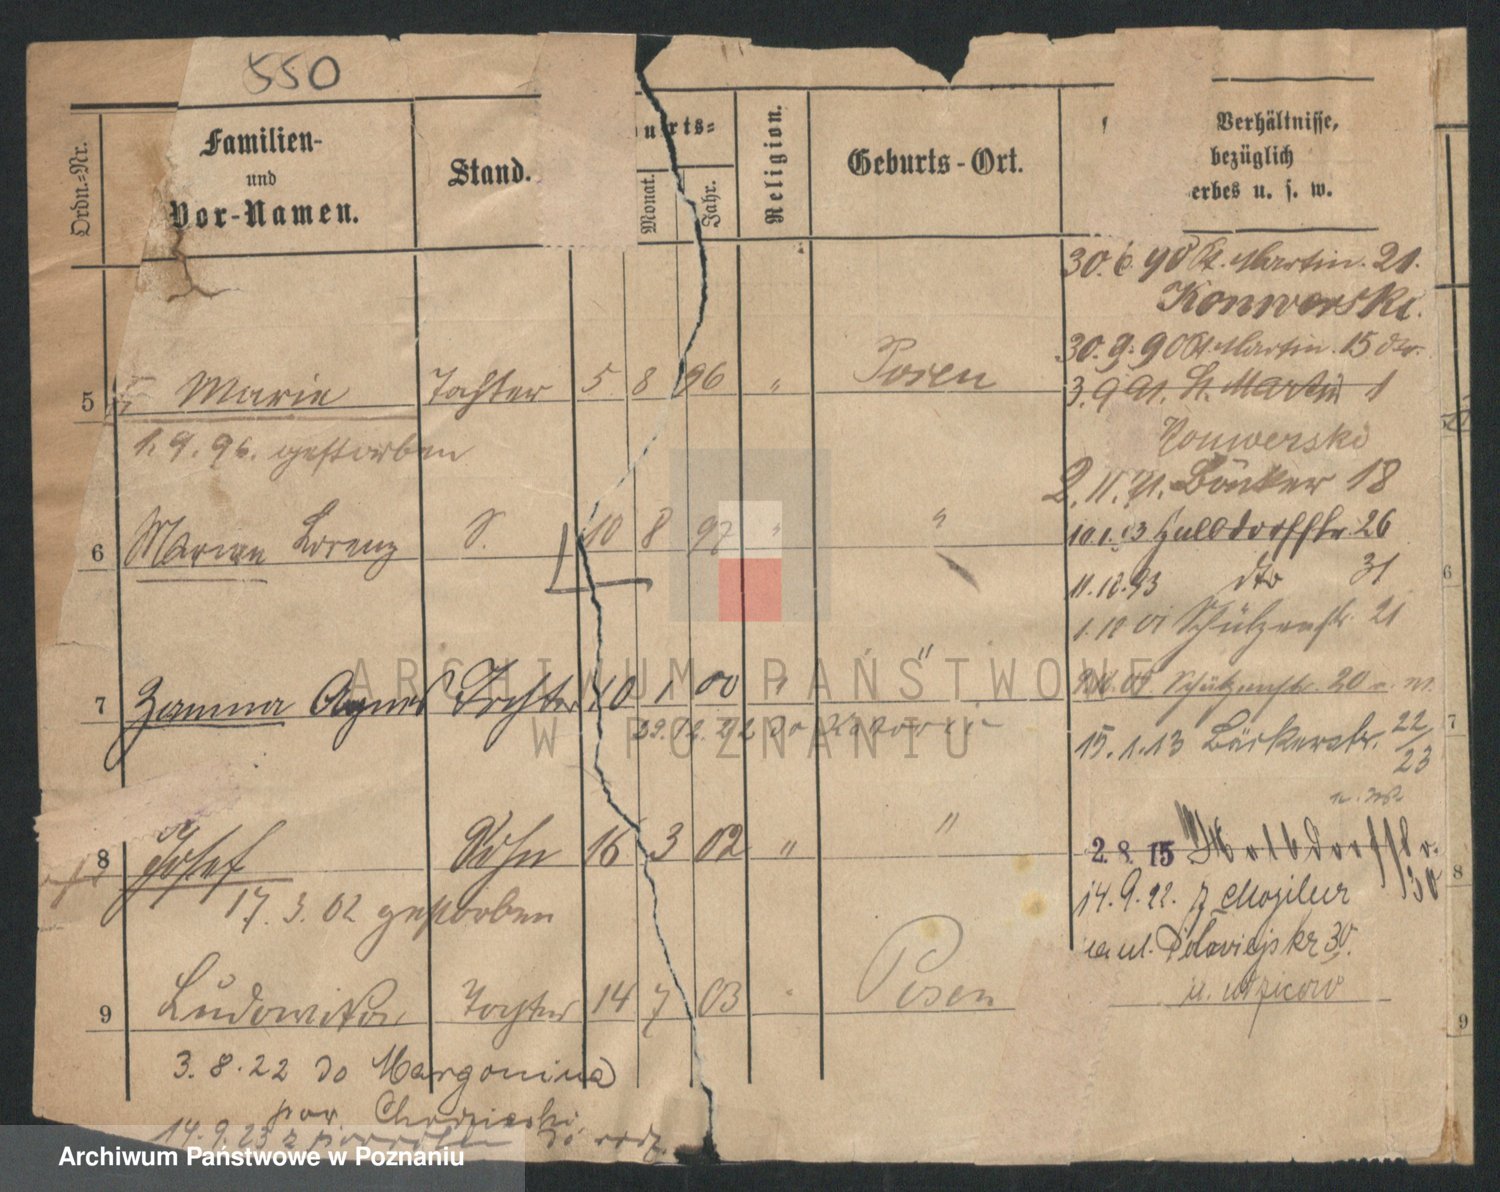 550
Ordn.-Nr.
Familien-
und
Vor-Namen.
Stand.
urts-
Monat.
Jahr.
Religion.
Geburts-Ort.
Verhältnisse,
bezüglich
erbes u. s. w.
30.6.90 St. Martin. 21.
Konwerski.
30.9.90 St. Martin. 15
5 Marie Tochter 5 8 96 " Posen
3.9.91. St. Martin 1
1.9.96. gestorben
Konwerski
2.11.91. Bäcker 18
6 Marian Lorenz S. 10 8 97 " "
10.1.93 Halbdorffstr. 26
11.12.93 dto 31
1.10 01 Schützenstr. 21
7 Zamma Agnes Tochter 10 1 00 " "
Schützenstr. 20
29.12.22 do
15.1.13 Bäckerstr. 22/23
8 Josef Sohn 16 3 02 " "
2.8.15 Halbdorffstr. 30
17.3.02 gestorben
14.9.22. z Mogilna
na ul. 30.
9 Ludowika Tochter 14 7 03 " Posen
3.8.22 do Margonina
pow Chodzieski
14.9.23 z powrotem do rodz.
ARCHIWUM PAŃSTWOWE
W POZNANIU
Archiwum Państwowe w Poznaniu
5
6
7
8
9